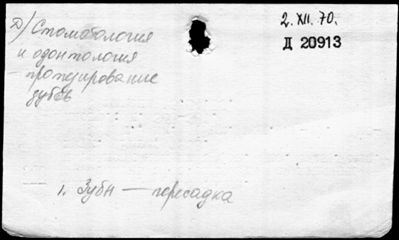 Д) Стоматология
и одонтология
— протезирование
зубов
2.XII.70.
Д 20913
1. Зубы — пересадка